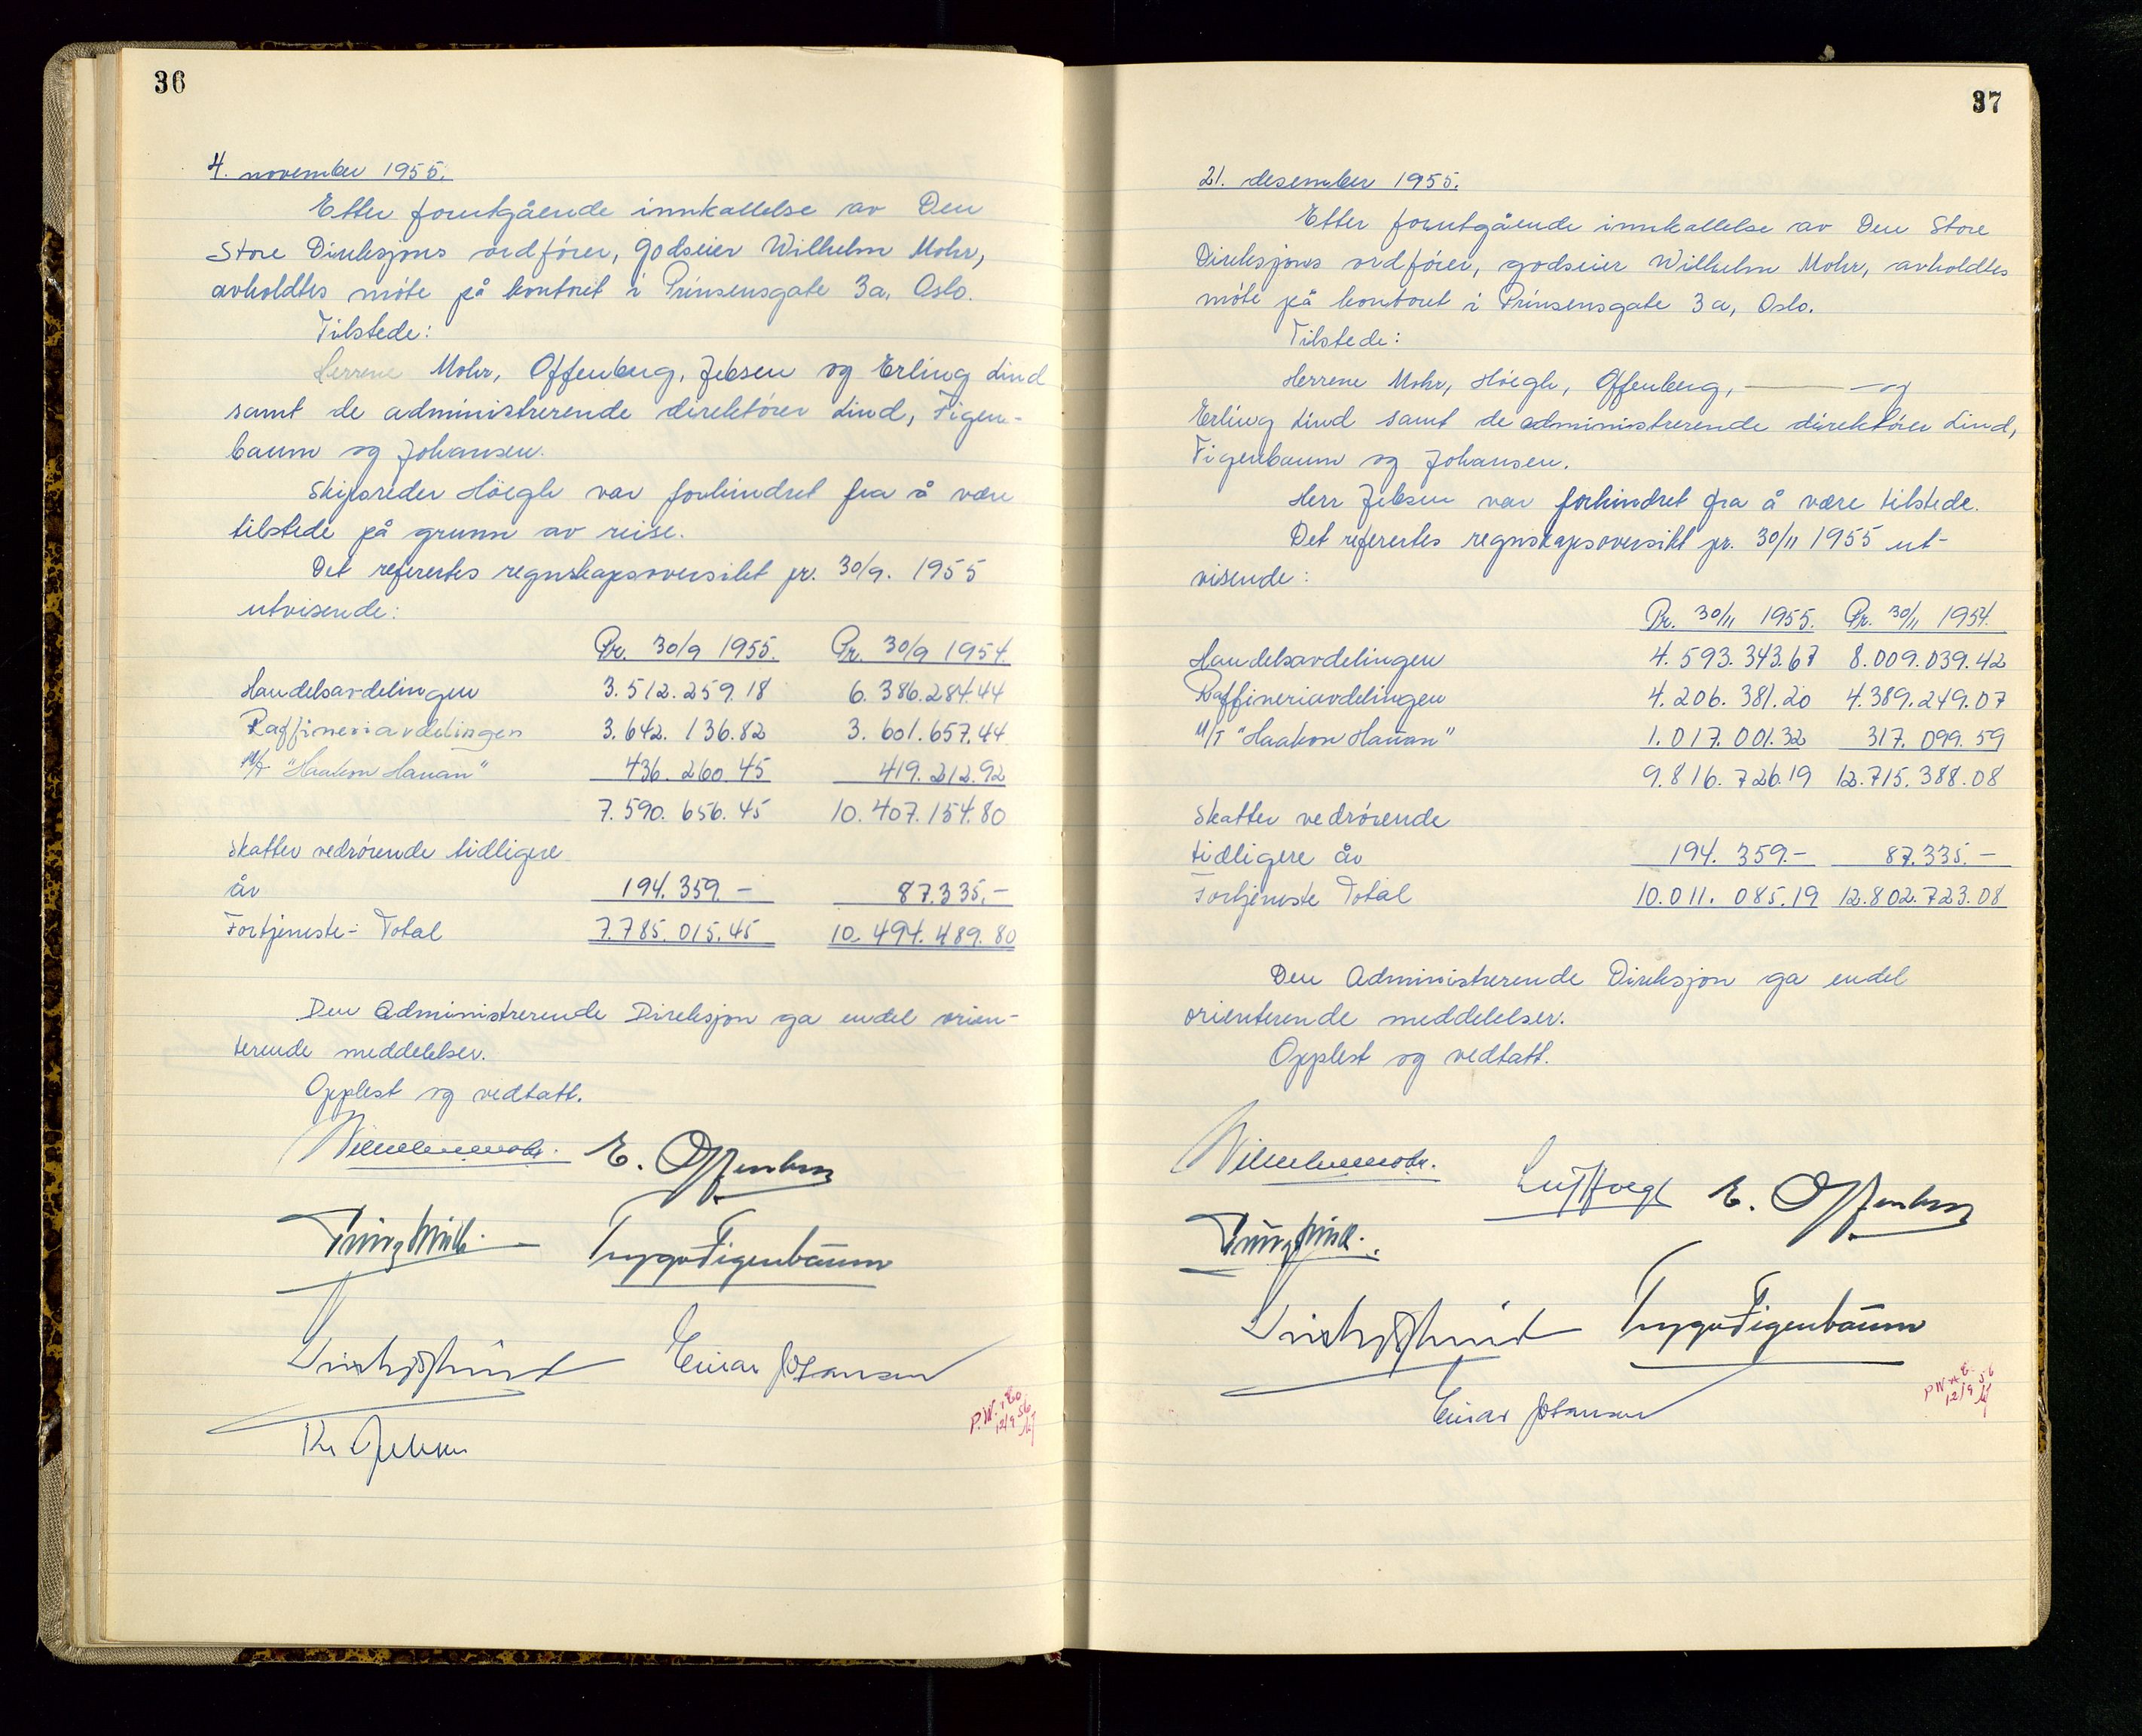 36
4. november 1955.
Etter forutgående innkallelse av Den
Store Direksjons ordfører, godseier Wilhelm Mohr,
avholdtes møte på kontoret i Prinsensgate 3a, Oslo.
Tilstede:
Herrene Mohr, Offenberg, Jebsen og Erling Lind
samt de administrerende direktører Lind, Figen-
baum og Johansen.
Skipsreder Höegh var forhindret fra å være
tilstede på grunn av reise.
Det refertes regnskapsoversikt pr. 30/9. 1955
utvisende:
Pr. 30/9 1955. Pr. 30/9 1954.
Handelsavdelingen 3.512.259.18 6.386.284.44
Raffineriavdelingen 3.642.136.82 3.601.657.44
M/T "Haakon Hauan" 436.260.45 419.212.92
7.590.656.45 10.407.154.80
Skatter vedrørende tidligere
år 194.359.- 87.335.-
Fortjeneste - Total 7.785.015.45 10.494.489.80
Den Administrerende Direksjon ga endel orien-
terende meddelelser.
Opplest og vedtatt.
Wilhelm Mohr. E. Offenberg
Erling Lind. Trygve Figenbaum
Einar Johansen
Kr. Jebsen
P.W. & Co
12/9 56
37
21. desember 1955.
Etter forutgående innkallelse av Den Store
Direksjons ordfører, godseier Wilhelm Mohr, avholdtes
møte på kontoret i Prinsensgate 3a, Oslo.
Tilstede:
Herrene Mohr, Höegh, Offenberg, — og
Erling Lind samt de administrerende direktører Lind,
Figenbaum og Johansen.
Herr Jebsen var forhindret fra å være tilstede.
Det refertes regnskapsoversikt pr. 30/11 1955 ut-
visende:
Pr. 30/11 1955. Pr. 30/11 1954.
Handelsavdelingen 4.593.343.67 8.009.039.42
Raffineriavdelingen 4.206.381.20 4.389.249.07
M/T "Haakon Hauan" 1.017.001.32 317.099.59
9.816.726.19 12.715.388.08
Skatter vedrørende
tidligere år 194.359.- 87.335.-
Fortjeneste Total 10.011.085.19 12.802.723.08
Den Administrerende Direksjon ga endel
orienterende meddelelser.
Opplest og vedtatt.
Wilhelm Mohr. Leif Höegh E. Offenberg
Erling Lind.
Trygve Figenbaum
Einar Johansen
P W & Co
12/9 56